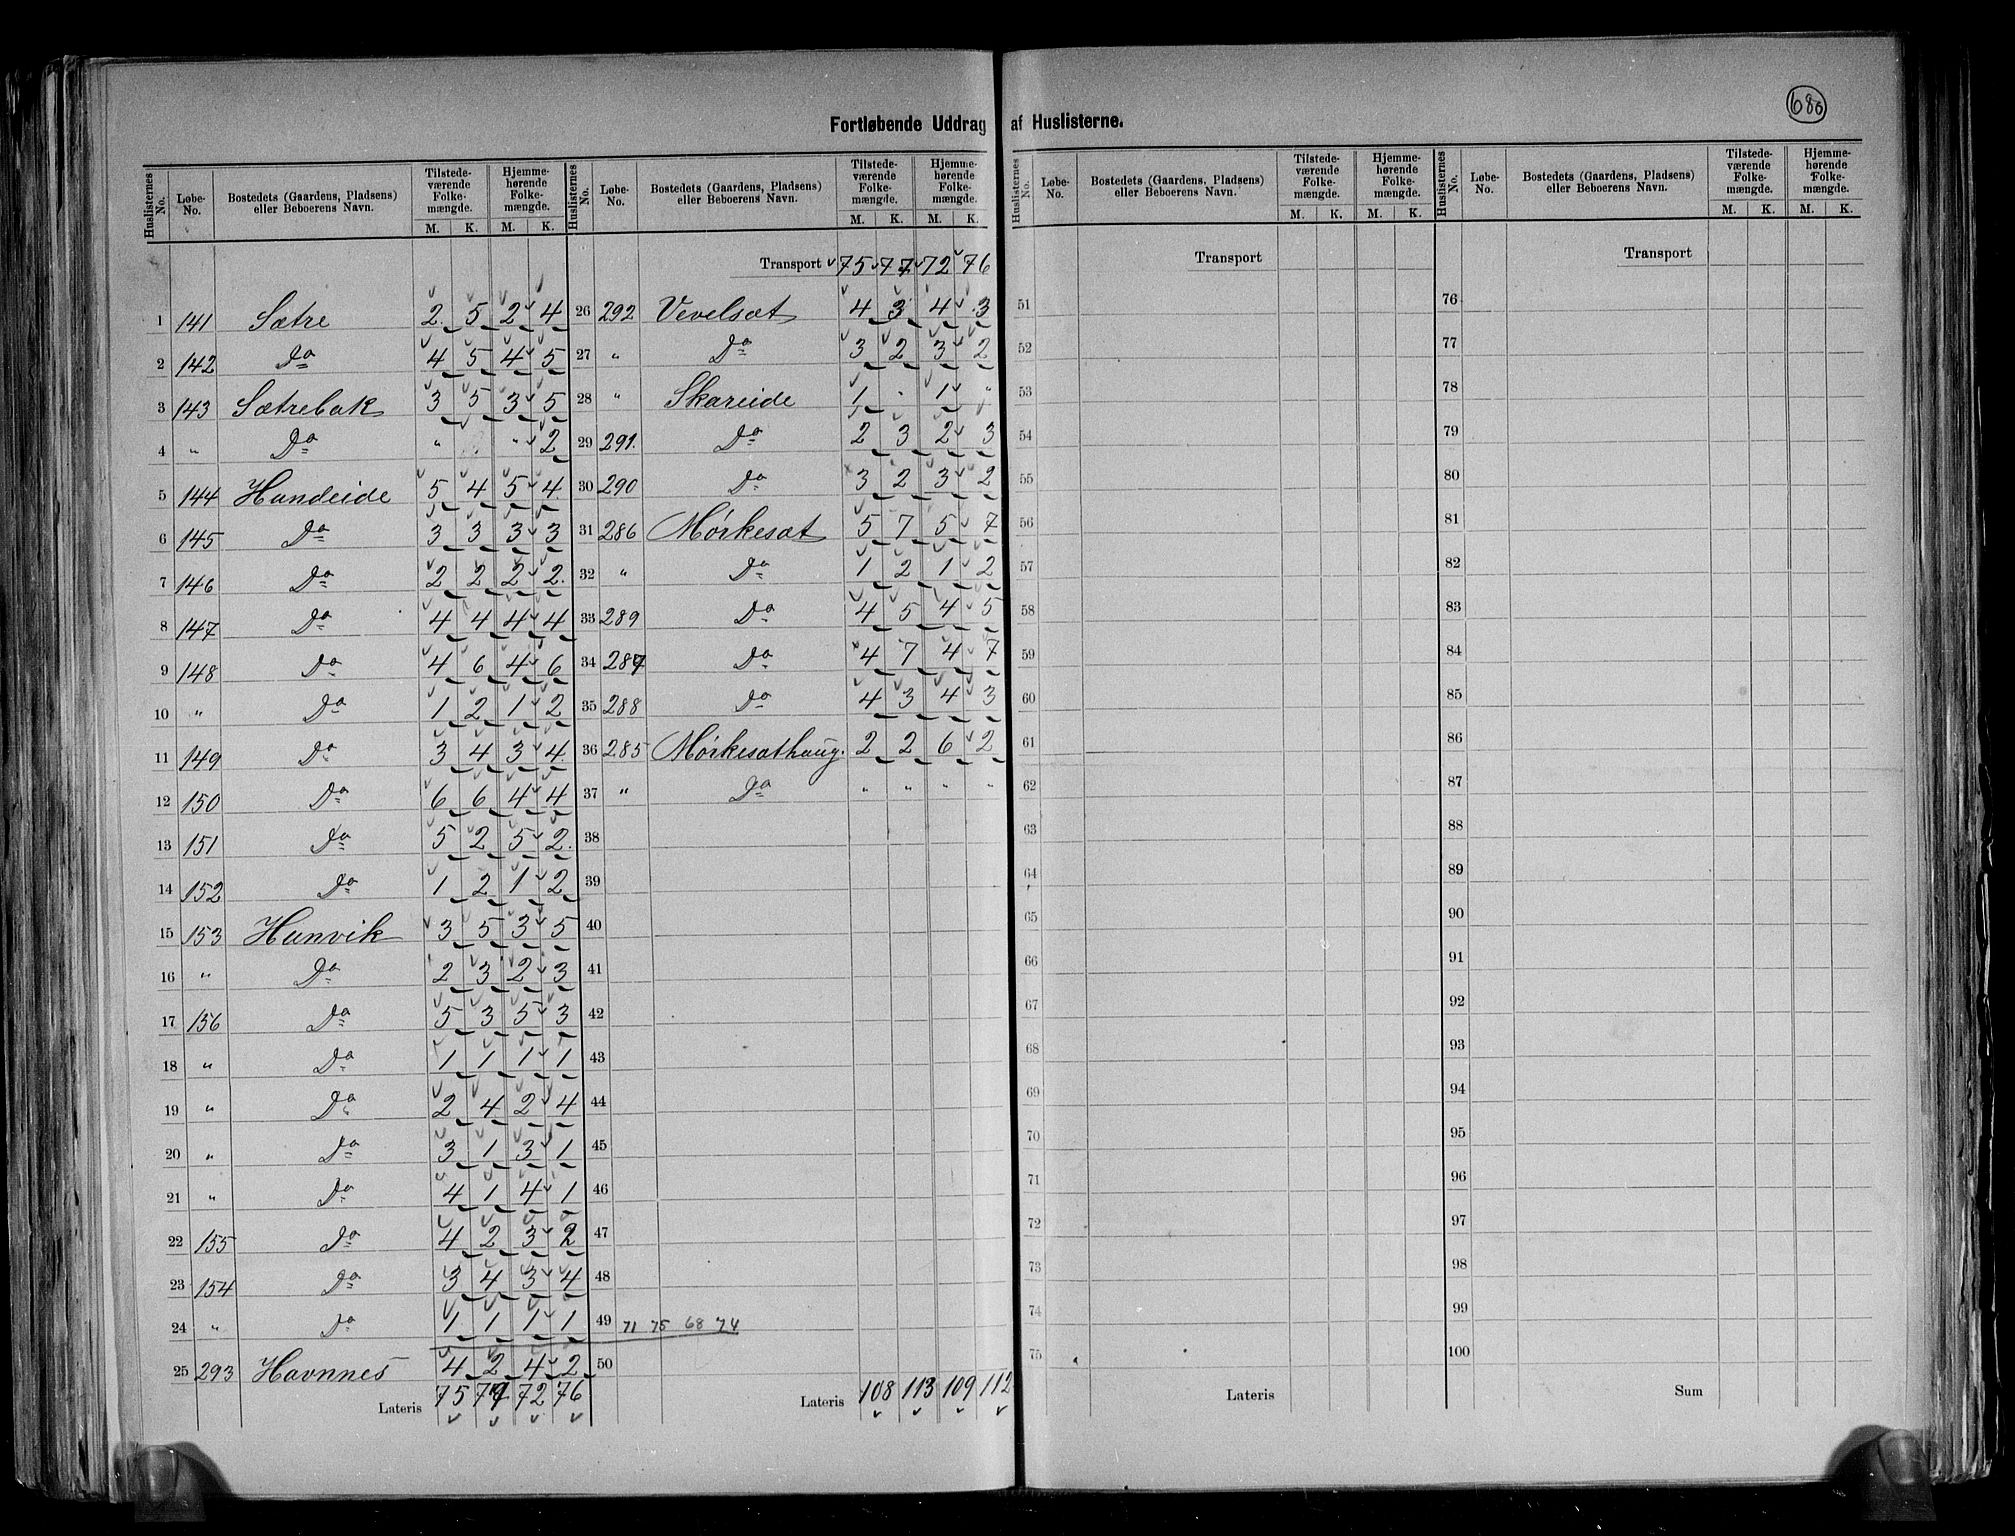 686
Fortløbende Uddrag af Huslisterne.
Huslisternes No. Løbe-No. Bostedets (Gaardens, Pladsens) eller Beboerens Navn. Tilstedeværende Folkemængde. M. K. Hjemmehørende Folkemængde. M. K.
1 141 Sætre 2 5 2 4
2 142 Do 4 5 4 5
3 143 Sætrebak 3 5 3 5
4 " Do " " 2
5 144 Hundeide 5 4 5 4
6 145 Do 3 3 3 3
7 146 Do 2 2 2 2
8 147 Do 4 4 4 4
9 148 Do 4 6 4 6
10 " Do 1 2 1 2
11 149 Do 3 4 3 4
12 150 Do 6 6 4 4
13 151 Do 5 2 5 2
14 152 Do 1 2 1 2
15 153 Hunvik 3 5 3 5
16 " Do 2 3 2 3
17 156 Do 5 3 5 3
18 " Do 1 1 1 1
19 " Do 2 4 2 4
20 " Do 3 1 3 1
21 " Do 4 1 4 1
22 155 Do 4 2 3 2
23 154 Do 3 4 3 4
24 " Do 1 1 1 1
25 293 Havnnes 4 2 4 2
Lateris 75 77 72 76
Huslisternes No. Løbe-No. Bostedets (Gaardens, Pladsens) eller Beboerens Navn. Tilstedeværende Folkemængde. M. K. Hjemmehørende Folkemængde. M. K.
Transport 75 77 72 76
26 292 Vevelsæt 4 3 4 3
27 " Do 3 2 3 2
28 " Skareide 1 " 1 "
29 291. Do 2 3 2 3
30 290 Do 3 2 3 2
31 286 Mørkesæt 5 7 5 7
32 " Do 1 2 1 2
33 289 Do 4 5 4 5
34 287 Do 4 7 4 7
35 288 Do 4 3 4 3
36 285 Mørkesæthaug. 2 2 6 2
37 " Do " " " "
38
39
40
41
42
43
44
45
46
47
48
49 71 75 68 74
50
Lateris 108 113 109 112
Huslisternes No. Løbe-No. Bostedets (Gaardens, Pladsens) eller Beboerens Navn. Tilstedeværende Folkemængde. M. K. Hjemmehørende Folkemængde. M. K.
Transport
51
52
53
54
55
56
57
58
59
60
61
62
63
64
65
66
67
68
69
70
71
72
73
74
75
Lateris
Huslisternes No. Løbe-No. Bostedets (Gaardens, Pladsens) eller Beboerens Navn. Tilstedeværende Folkemængde. M. K. Hjemmehørende Folkemængde. M. K.
Transport
76
77
78
79
80
81
82
83
84
85
86
87
88
89
90
91
92
93
94
95
96
97
98
99
100
Sum